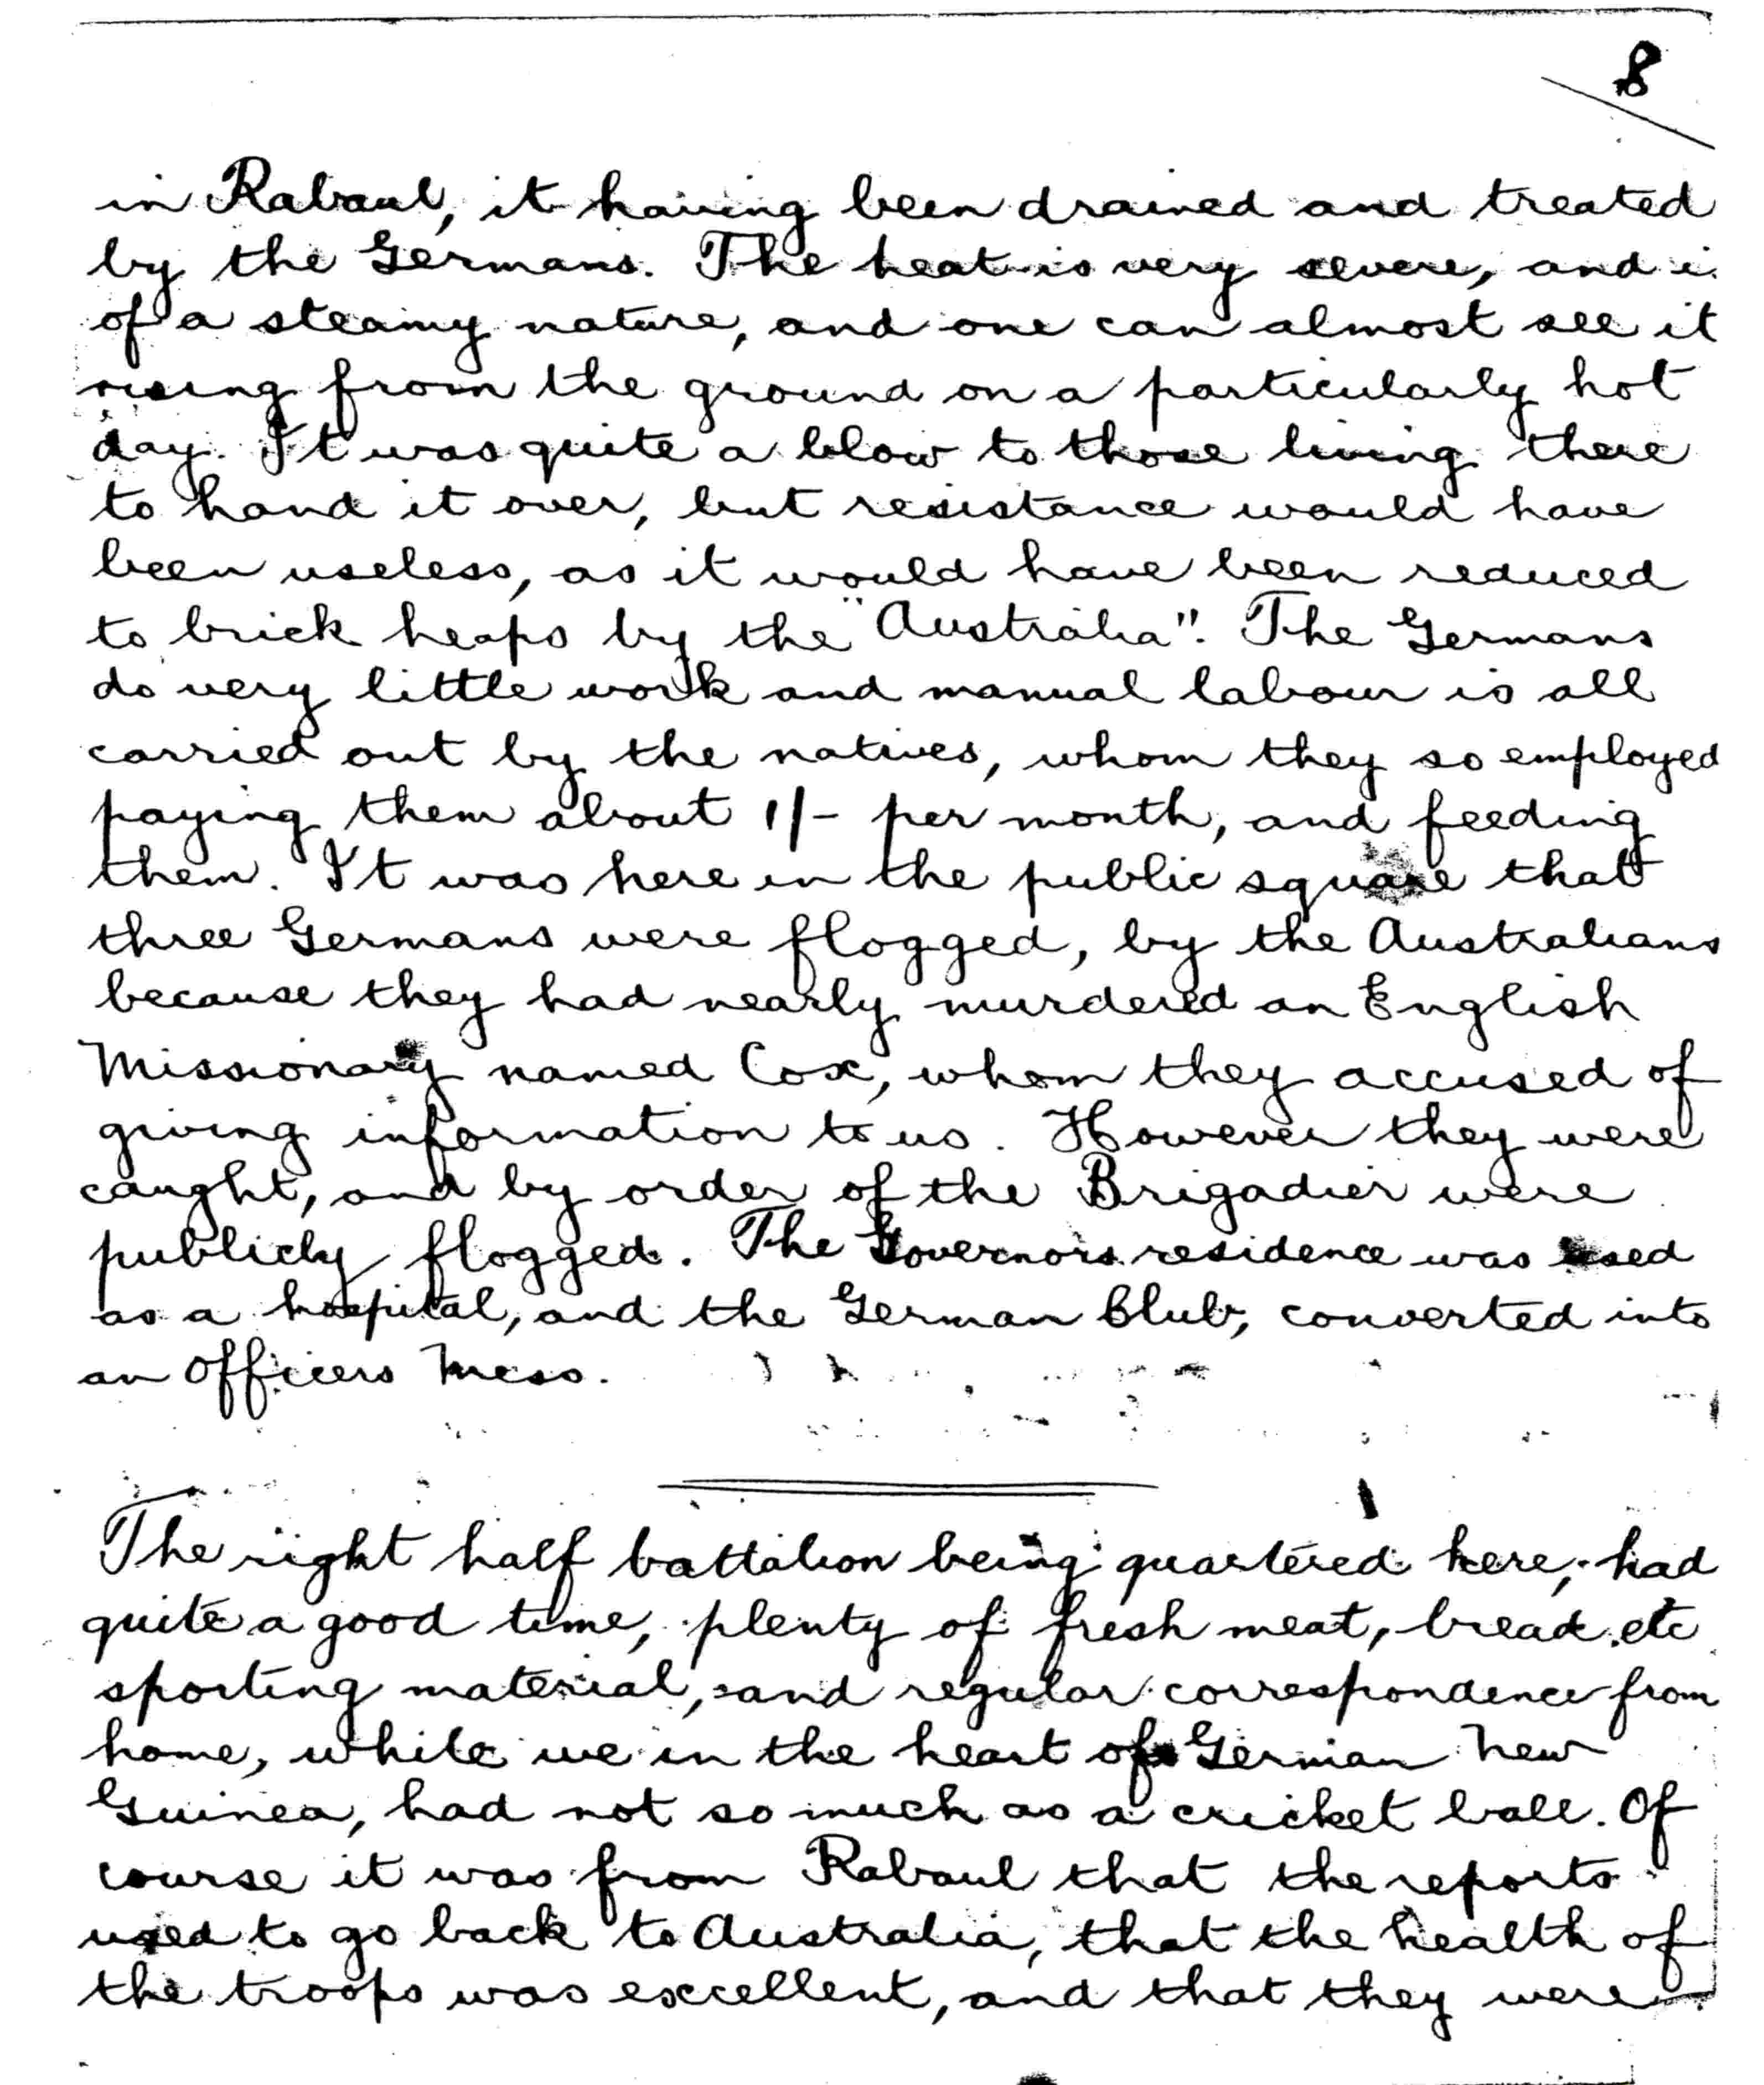 8
in Rabaul, it having been drained and treated
by the Germans. The heat is very severe, and i
of a steamy nature, and one can almost see it
rising from the ground on a particularly hot
day. It was quite a blow to those living there
to hand it over, but resistance would have
been useless, as it would have been reduced
to brick heaps by the "Australia". The Germans
do very little work and manual labour is all
carried out by the natives, whom they so employed
paying them about 1/- per month, and feeding
them. It was here in the public square that
three Germans were flogged, by the Australians
because they had nearly murdered an English
Missionary named Cox, whom they accused of
giving information to us. However they were
caught, and by order of the Brigadier were
publicly flogged. The Governors residence was used
as a hospital, and the German Club, converted into
an Officers Mess.
The right half battalion being quartered here, had
quite a good time, plenty of fresh meat, bread etc
sporting material, and regular correspondence from
home, while we in the heart of German New
Guinea, had not so much as a cricket ball. Of
course it was from Rabaul that the reports
used to go back to Australia, that the health of
the troops was excellent, and that they were